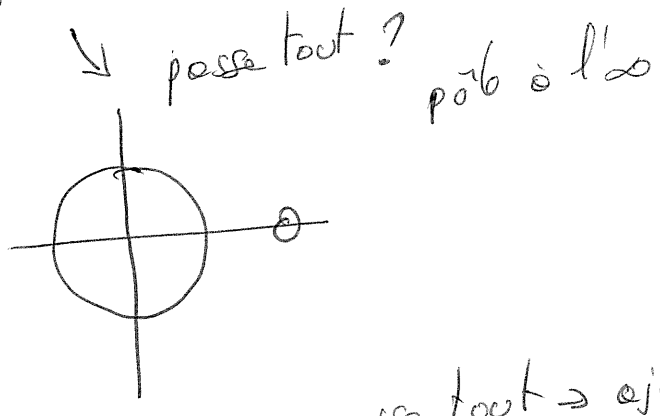 ↘ passe tout ?
pôle à l'∞
tout ⇒ aj